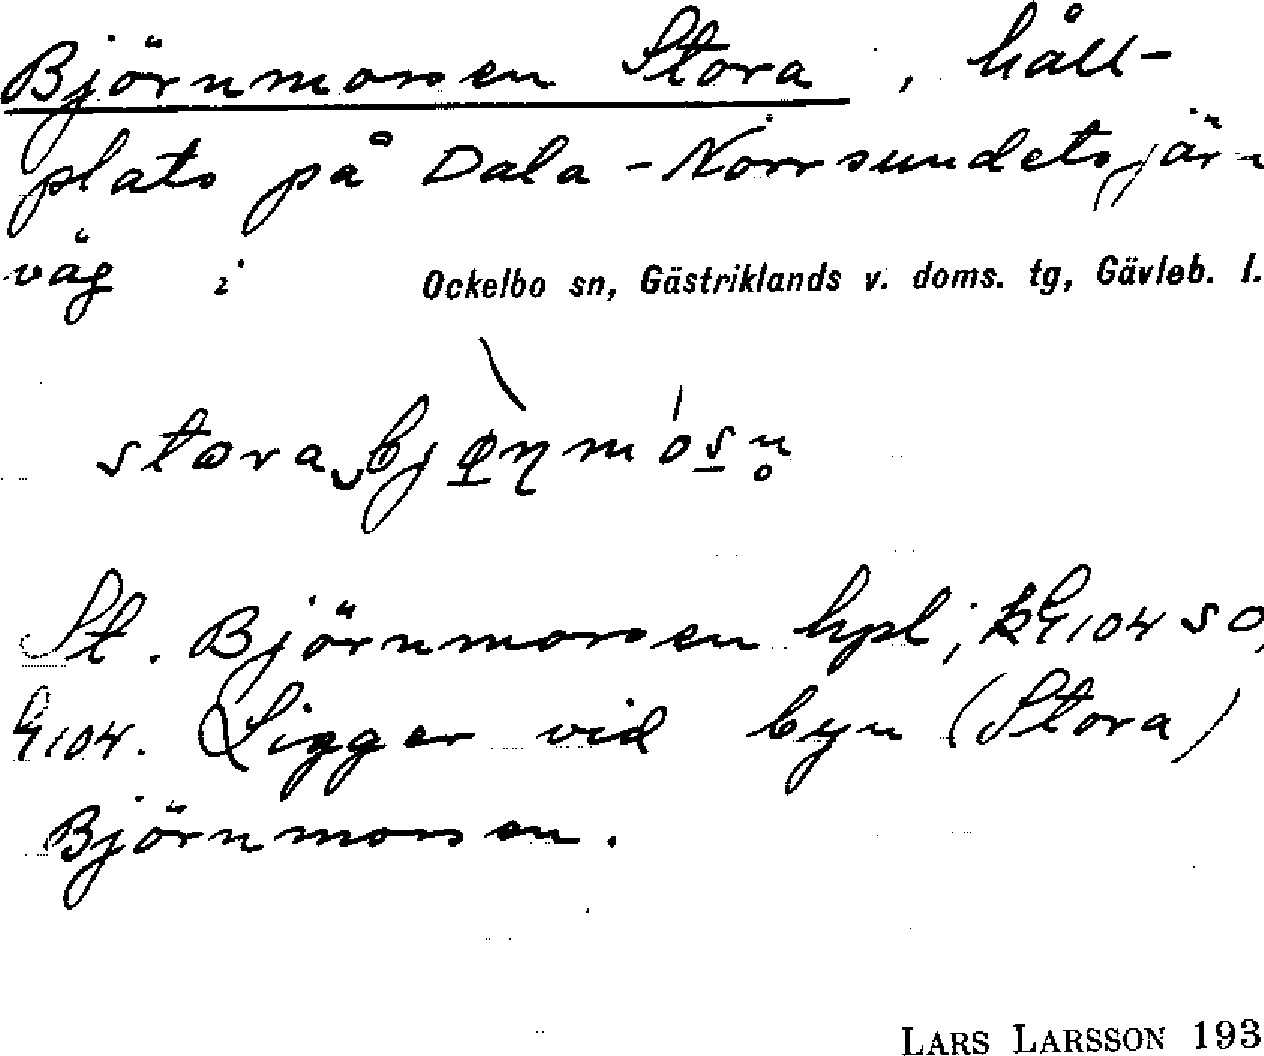 Björnmossen Stora, håll-
plats på Dala-Norrsundets jär-
väg i Ockelbo sn, Gästriklands v. doms. tg, Gävleb. l.
stora
St. Björnmossen hpl; SO,
Ligger vid byn (Stora)
Björnmossen.
LARS LARSSON 193